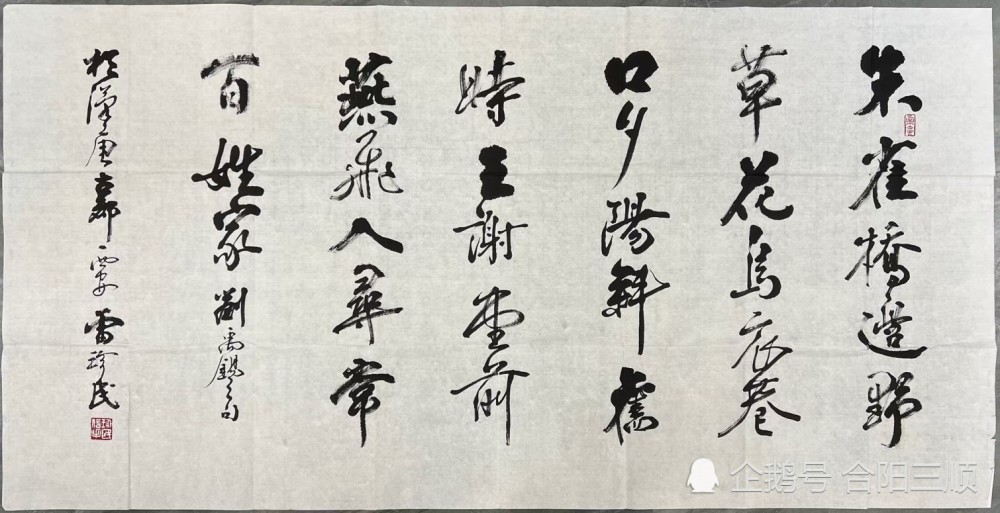 朱雀橋邊野
草花烏衣巷
口夕陽斜舊
時王謝堂前
燕飛入尋常
百姓家 劉禹錫句
於漢唐古都西安雷珍民
企鹅号 合阳三顺